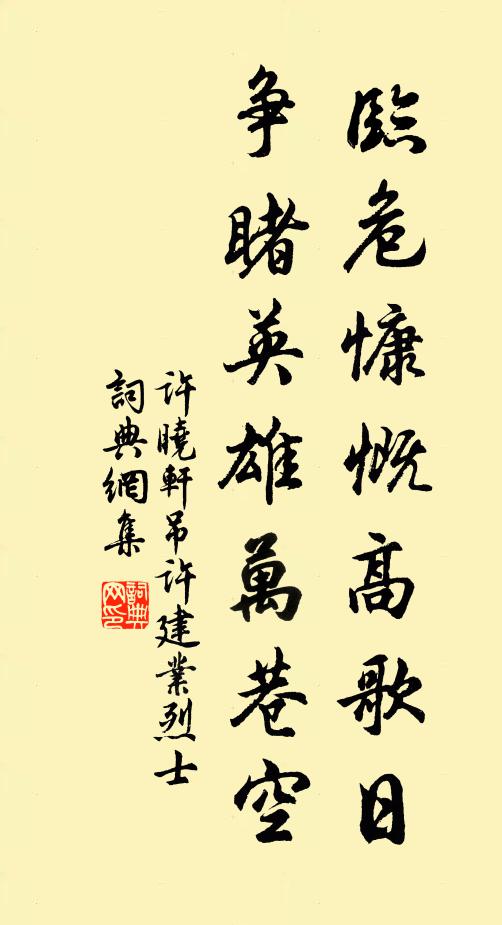 臨危慷慨高歌日
争睹英雄萬巷空
许曉軒吊许建業烈士
詞典網集
詞典
网印